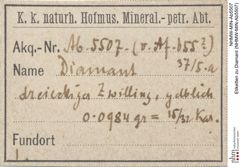 K. k. naturh. Hofmus. Mineral.-petr. Abt.
Akq.-Nr. Ab. 5507. (v. Af. 655?)
37/5.a
Name Diamant
dreieckiger Zwilling, gelblich
0.0984 gr = 15/32 Kar.
Fundort
NHMW-MIN-Ab5507
Etiketten zu Diamant (NHMW-MIN-Ab5507)